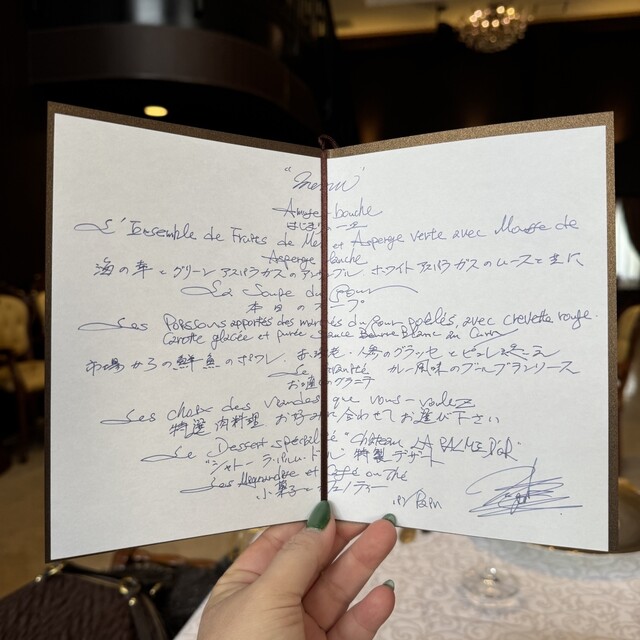 "menu"
Amuse-bouche
はじまりの一皿
L'Ensemble de Fruites de Mer et Asperge verte avec Mousse de
Asperge blanche
海の幸とグリーンアスパラガスのアンサンブル ホワイトアスパラガスのムースと共に
La Soupe du Jour
本日のスープ
Les Poissons apportés des marchés du jour poêlés, avec crevette rouge.
Carotte glacée et purée, sauce Beurre Blanc au Curry
市場からの鮮魚のポワレ、赤海老、人参のグラッセとピュレを添え
カレー風味のブールブランソース
Le Granité
お口直しのグラニテ
Les choix des viandes que vous-voulez
特選肉料理 お好みに合わせてお選び下さい
Le Dessert spécialité "Château LA PALME D'OR"
"シャトー ラ・パルム・ドール" 特製デザート
Les Mignardise et Café ou Thé
小菓子と ティー
Pain